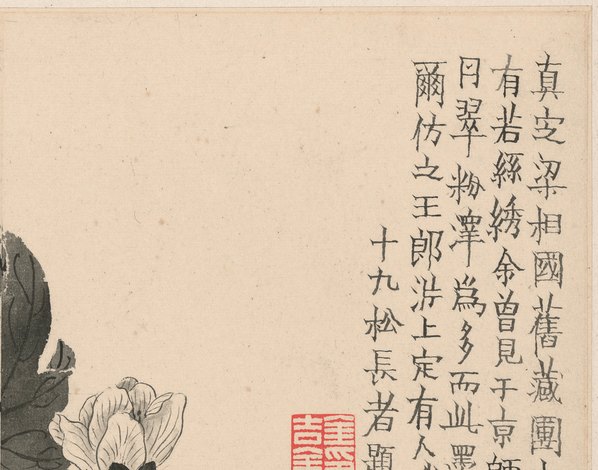 真定梁相國舊藏團
有若絲綉余曽見于京師
丹翠粉澤爲多而此墨
爾仿之王郎遊上定有人
十九松長者題